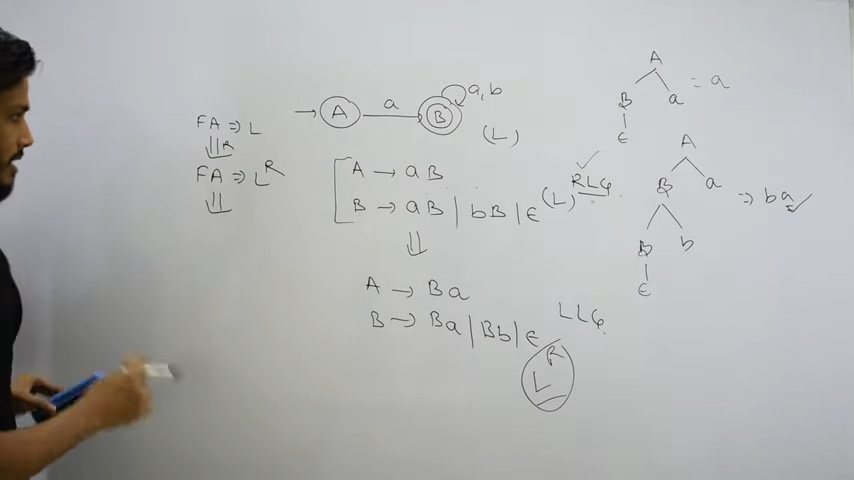 FA ⇒ L
⇓R
FA ⇒ L^R
⇓
→ A a B a, b
(L)
A → aB
B → aB | bB | ε (L)
RLG
⇓
A → Ba
B → Ba | Bb | ε
LLG
L^R
A
B a = a
ε
A
B a ⇒ ba
B b
ε